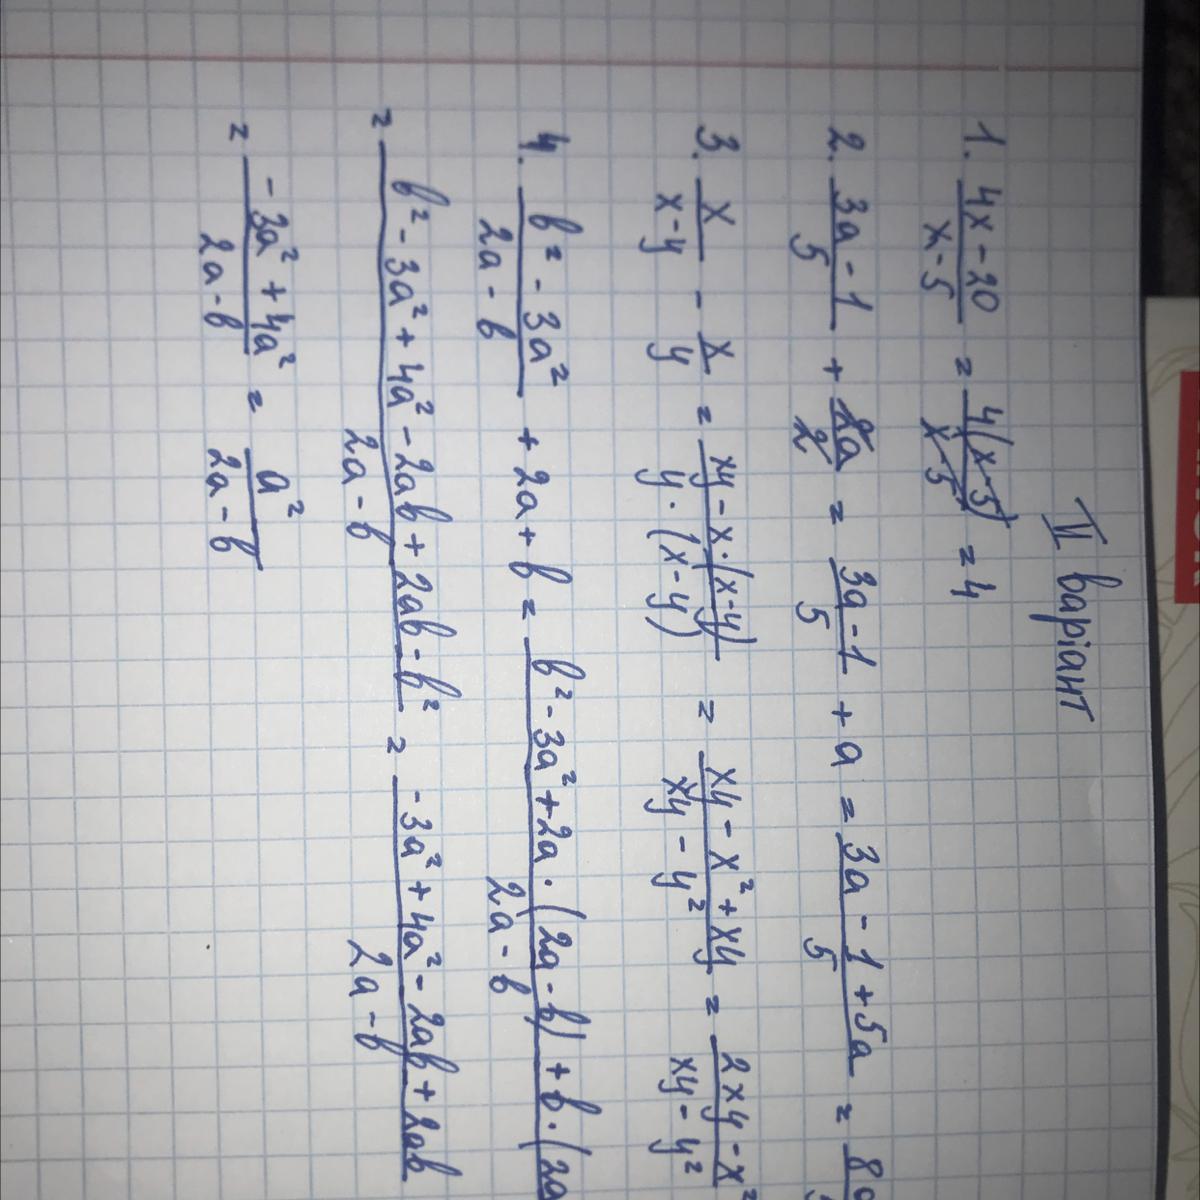 II варіант
1. (4x-20)/(x-5) = 4(x-5)/(x-5) = 4
2. (3a-1)/5 + 2a/2 = (3a-1)/5 + a = (3a-1+5a)/5 =
3. x/(x-y) - x/y = (xy-x·(x-y))/(y·(x-y)) = (xy-x²+xy)/(xy-y²) = (2xy-x²)/(xy-y²)
4. (b²-3a²)/(2a-b) + 2a+b = (b²-3a²+2a·(2a-b)+b·(2a)/(2a-b)
= (b²-3a²+4a²-2ab+2ab-b²)/(2a-b) = (-3a²+4a²-2ab+2ab)/(2a-b)
= (-3a²+4a²)/(2a-b) = a²/(2a-b)